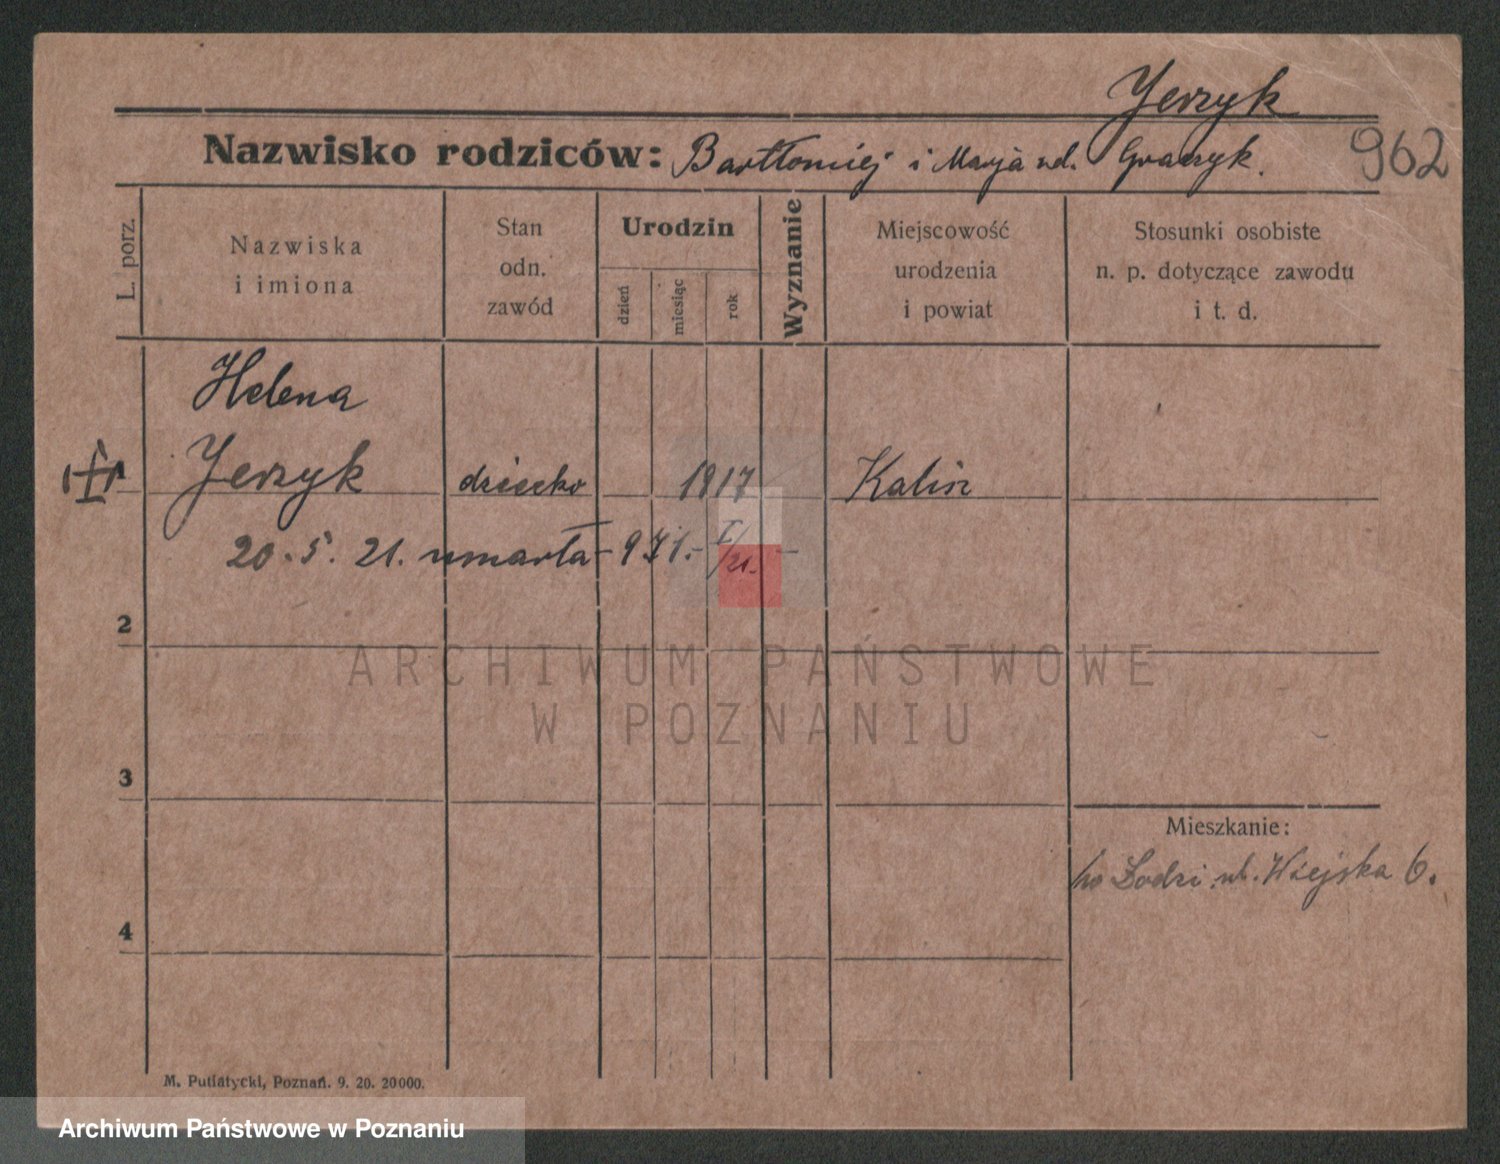 Jerzyk
Nazwisko rodziców: Bartłomiej i Marja ud. Graczyk.
962
L. porz.
Nazwiska
i imiona
Stan
odn.
zawód
Urodzin
dzień
miesiąc
rok
Wyznanie
Miejscowość
urodzenia
i powiat
Stosunki osobiste
n. p. dotyczące zawodu
i t. d.
Helena
1 Jerzyk dziecko 1917 Kalisz
20. 5. 21. umarła - 971. - V/21. -
2
ARCHIWUM PAŃSTWOWE
W POZNANIU
3
Mieszkanie:
Łodzi ul. Wiejska 6.
4
M. Putiatycki, Poznań. 9. 20. 20000.
Archiwum Państwowe w Poznaniu